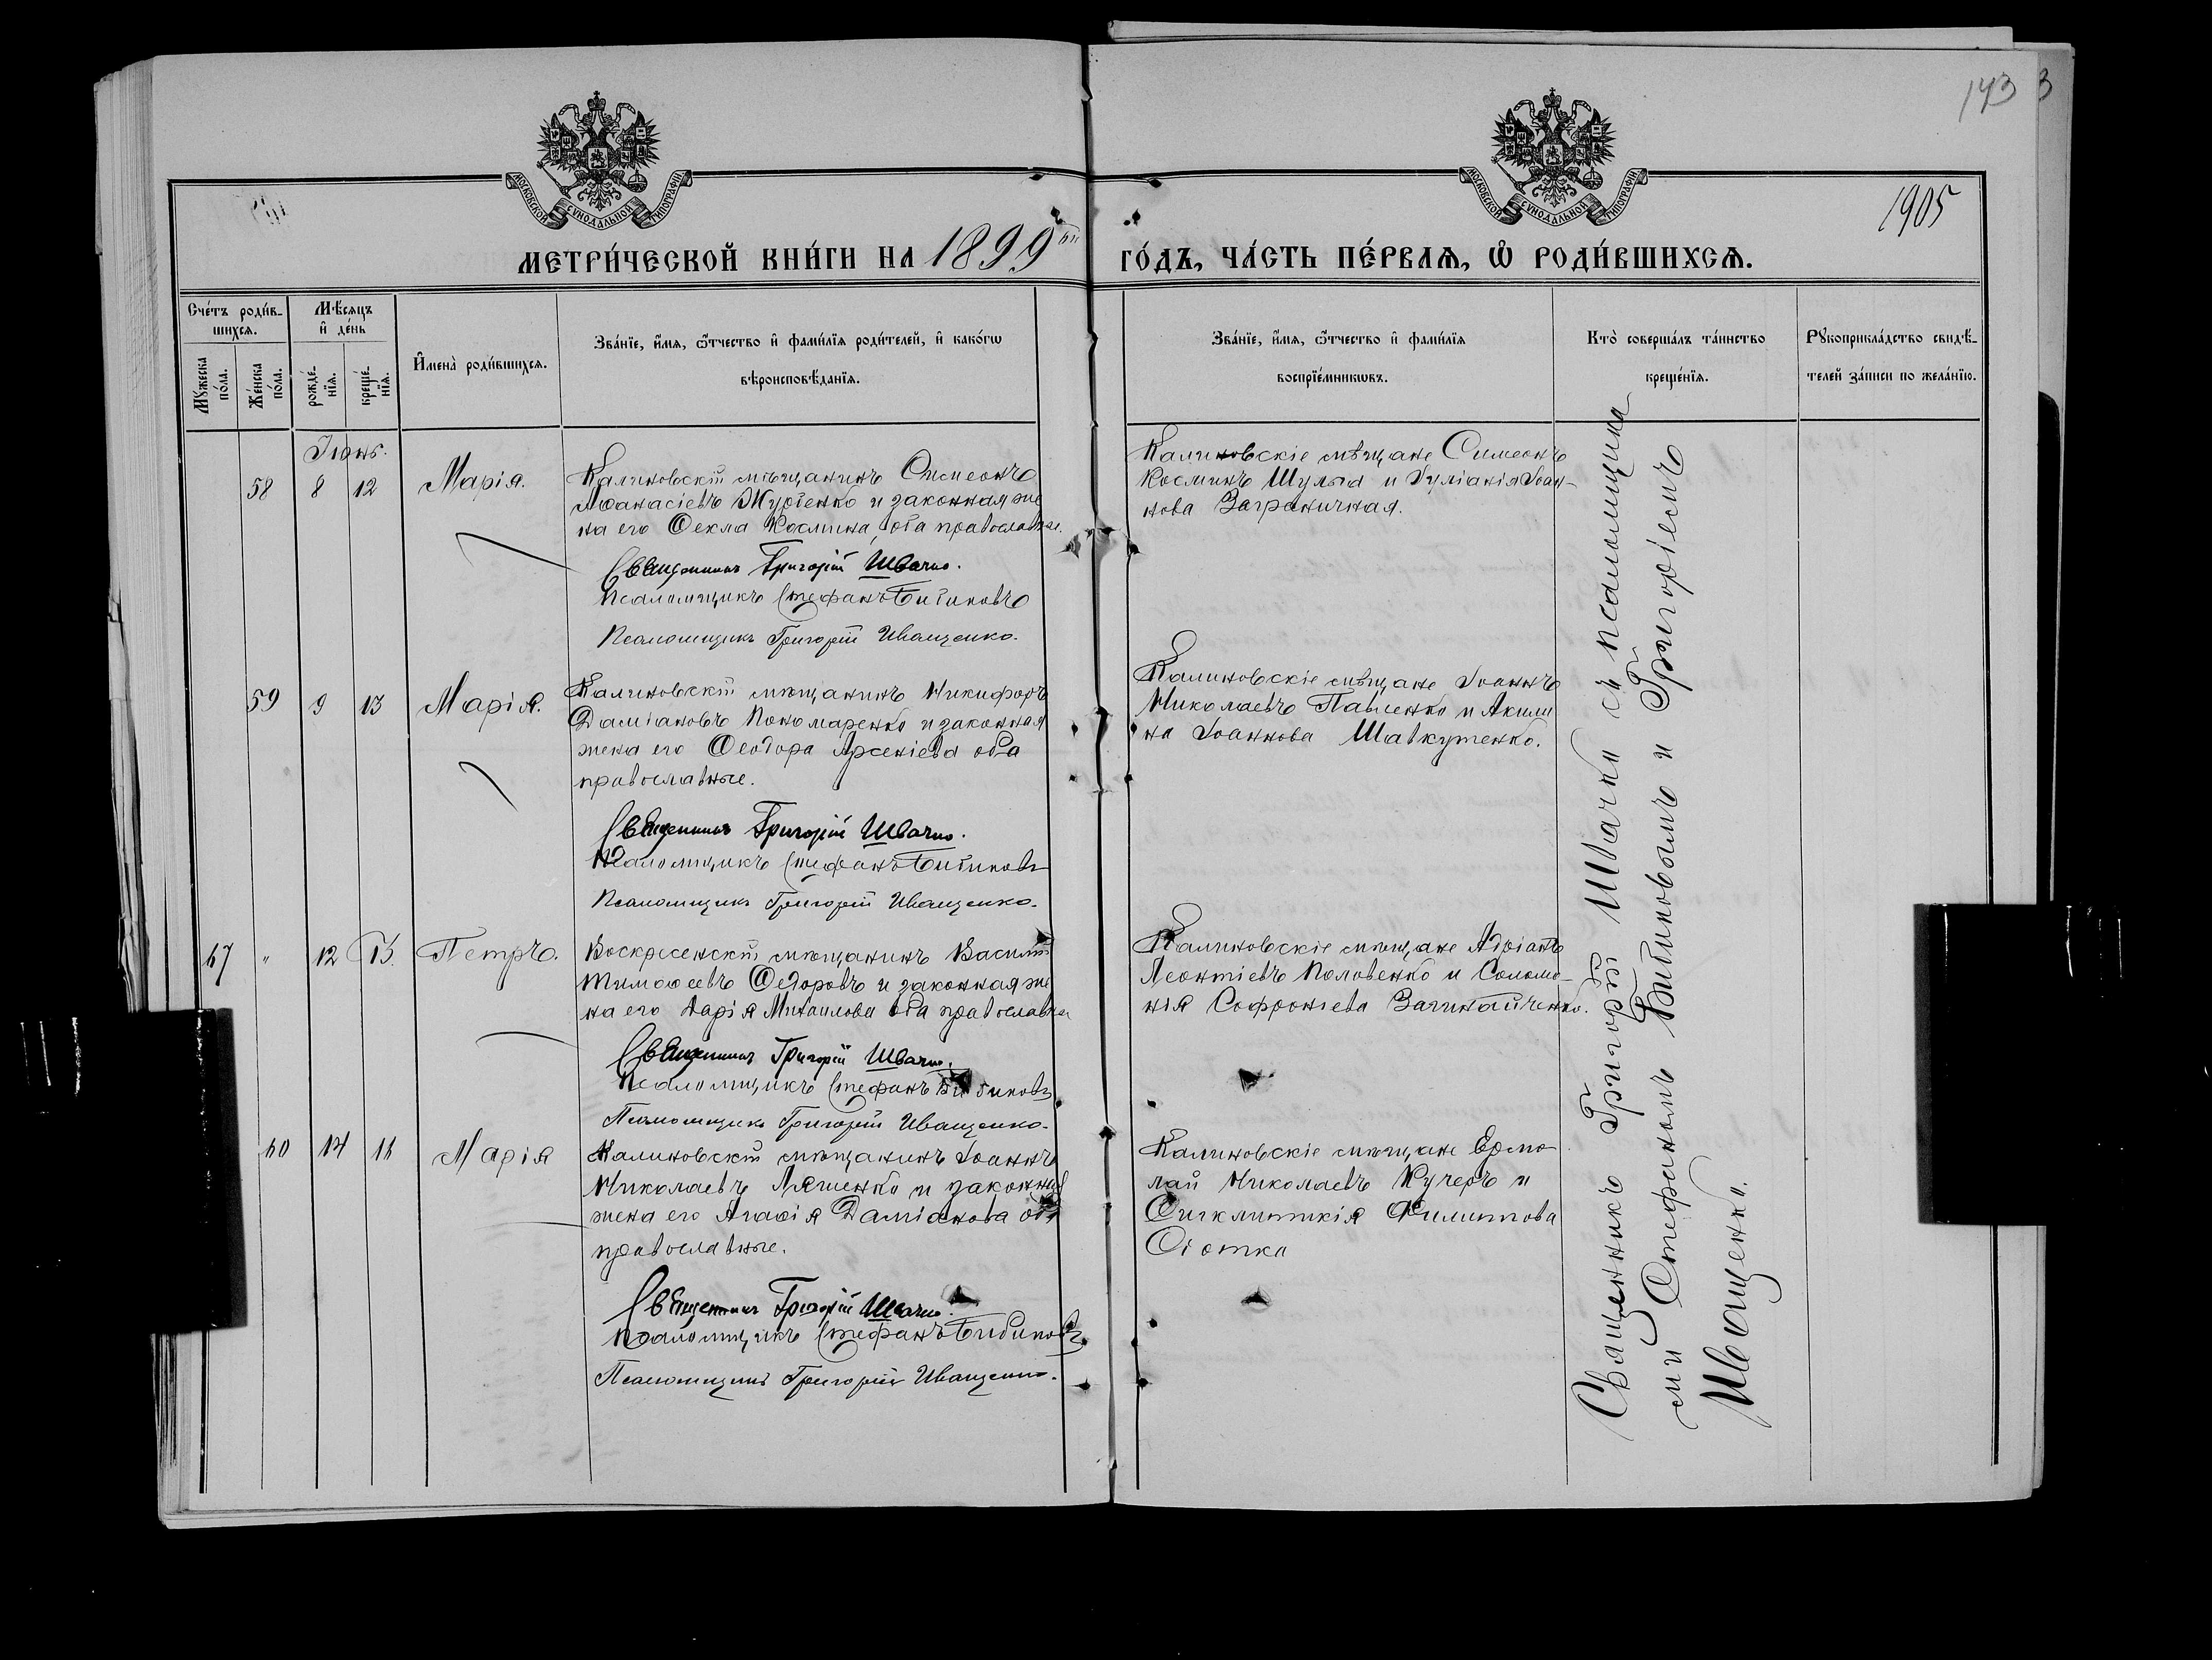 173
3
МОСКОВСКОЙ СѴНОДАЛЬНОЙ ТИПОГРАФІИ
МОСКОВСКОЙ СѴНОДАЛЬНОЙ ТИПОГРАФІИ
1905
МЕТРИ́ЧЕСКОЙ КНИ́ГИ НА 1899
ГО́ДЪ, ЧА́СТЬ ПЕ́РВАѦ, Ѡ҆ РОДИ́ВШИХСѦ.
Сче́тъ роди́в-
шихсѧ.
Мꙋ́жеска по́ла.
Же́нска по́ла.
Мѣ́сѧцъ
и҆ де́нь
рожде́-
нїѧ.
креще́-
нїѧ.
И҆мена̀ роди́вшихсѧ.
Зва́нїе, и҆́мѧ, ѻ҆́тчество и҆ фами́лїѧ роди́телей, и҆ како́гѡ
вѣроисповѣ́данїѧ.
Зва́нїе, и҆́мѧ, ѻ҆́тчество и҆ фами́лїѧ
воспрїе́мникѡвъ.
Кто̀ соверша́лъ та́инство
креще́нїѧ.
Рꙋкоприкла́дство свидѣ́-
телей за́писи по жела́нїю.
Іюнь.
58 8 12 Марія.
Калиновскій мѣщанинъ Симеонъ
Аѳанасіевъ Журбенко и законная же
на его Ѳекла Космина, оба православные.
Священникъ Григорій Швачко.
Псаломщикъ Стефанъ Бибиковъ
Псаломщикъ Григорій Иващенко.
Калиновскіе мѣщане Симеонъ
Косминъ Шулыа и Іуліанія Іоан-
нова Заграничная.
59 9 13 Марія.
Калиновскій мѣщанинъ Никифоръ
Даміановъ Пономаренко и законная
жена его Ѳеодора Арсеніева оба
православные.
Священникъ Григорій Швачко.
Псаломщикъ Стефанъ Бибиковъ
Псаломщикъ Григорій Иващенко.
Калиновскіе мѣщане Іоаннъ
Николаевъ Павленко и Акили
на Іоаннова Шавкутенко.
67 " 12 13. Петръ.
Воскресенскій мѣщанинъ Василій
Тимоѳеевъ Ѳедоровъ и законная же
на его Дарія Михаилова оба православные
Священникъ Григорій Швачко.
Псаломщикъ Стефанъ Бибиковъ
Псаломщикъ Григорій Иващенко.
Калиновскіе мѣщане Адріанъ
Леонтіевъ Половенко и Соломо-
нія Софроніева Зачинайченко.
60 14 16 Марія
Калиновскій мѣщанинъ Іоаннъ
Николаевъ Ляшенко и законная
жена его Агаѳія Даміанова оба
православные.
Священникъ Григорій Швачко.
Псаломщикъ Стефанъ Бибиковъ
Псаломщикъ Григорій Иващенко.
Калиновскіе мѣщане Ермо
лай Николаевъ Кучеръ и
Сигклитикія Филиппова
Сіотка
Священникъ Григорій Швачко съ псаломщика
ми Стефаномъ Бибиковымъ и Григоріемъ
Иващенко.